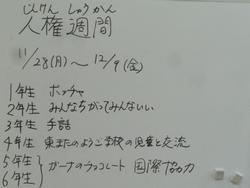 じんけん しゅうかん
人権週間
11/28(月)～12/9(金)
1年生 ボッチャ
2年生 みんなちがってみんないい
3年生 手話
4年生 東またのようご学校の児童と交流
5年生
6年生 ガーナのチョコレート 国際協力